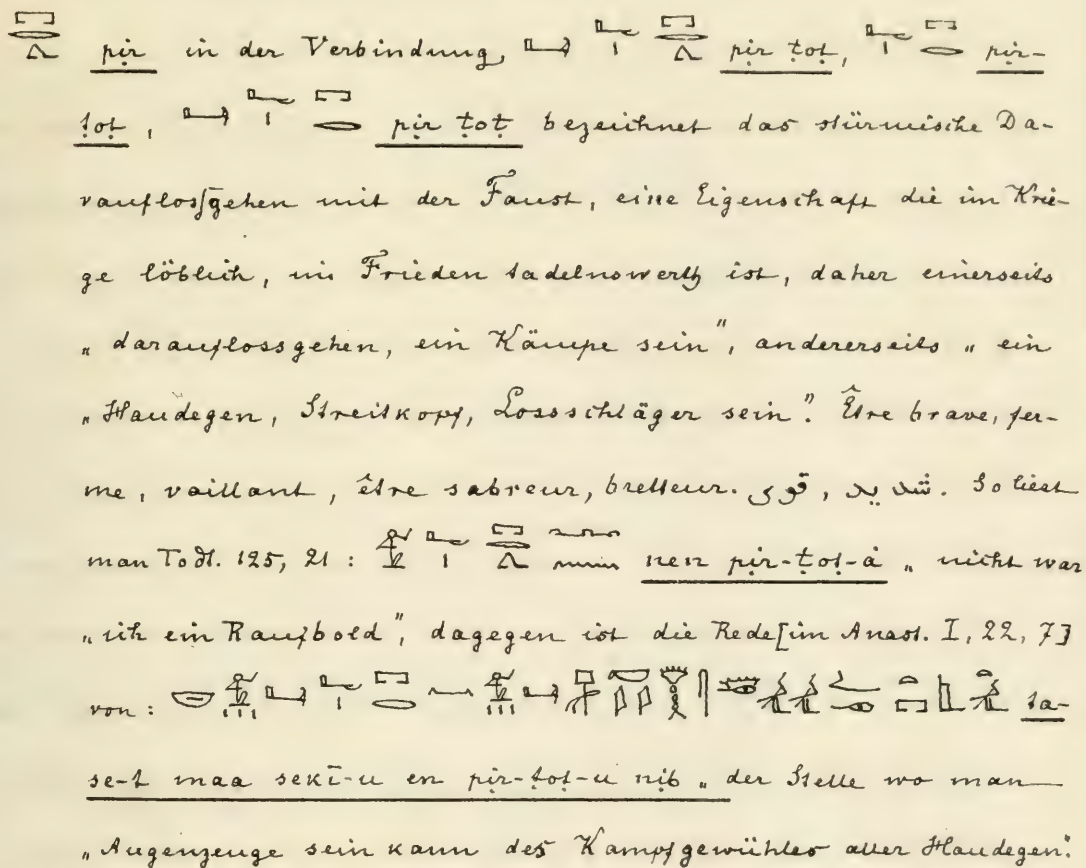 𓉐𓂋𓂻 pịr in der Verbindung, 𓂡 𓂝𓏤 𓉐𓂋𓂻 pịr ṭoṭ, 𓂝𓏤 𓉐𓂋 pịr-
ṭoṭ, 𓂡 𓂝𓏤 𓉐𓂋 pịr ṭoṭ bezeichnet das stürmische Da-
rauflossgehen mit der Faust, eine Eigenschaft die im Krie-
ge löblich, im Frieden tadelnswerth ist, daher einerseits
„darauflossgehen, ein Kämpe sein", andererseits „ein
„Haudegen, Streitkopf, Lossschläger sein". Être brave, fer-
me, vaillant, être sabreur, bretteur. شديد , قوى. So liest
man Todt. 125, 21 : 𓂝𓏤 𓉐𓂋𓂻 nen pịr-ṭoṭ-à „nicht war
„ich ein Raufbold", dagegen ist die Rede [im Anast. I, 22, 7]
von : ta-
se-t maa sekī-u en pịr-ṭoṭ-u nib „der Stelle wo man
„Augenzeuge sein kann des Kampfgewühles aller Haudegen".